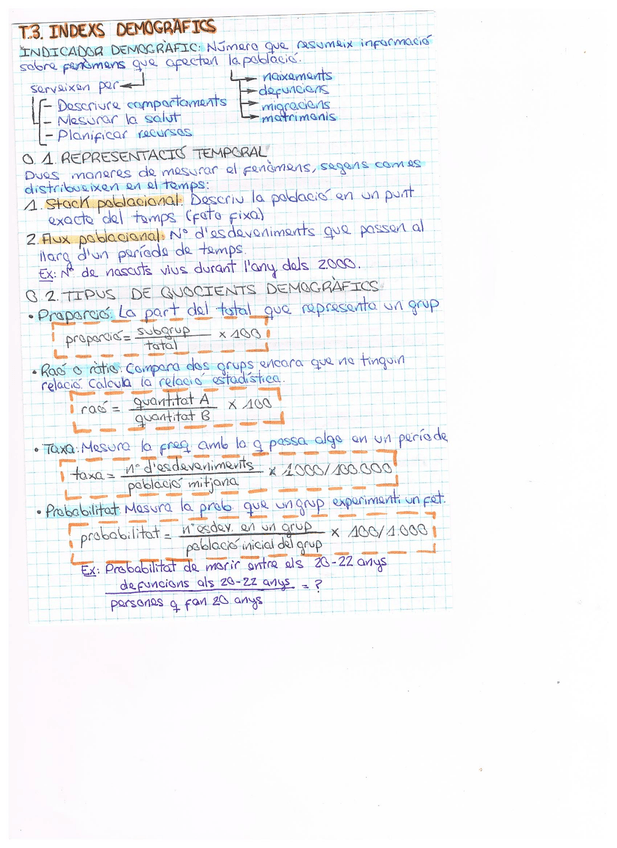 T.3. INDEXS DEMOGRÀFICS
INDICADOR DEMOGRÀFIC: Número que resumeix informació
sobre fenòmens que afecten la població.
serveixen per
naixements
defuncions
- Descriure comportaments
migracions
- Mesurar la salut
matrimonis
- Planificar recursos
0.1. REPRESENTACIÓ TEMPORAL
Dues maneres de mesurar el fenòmens, segons com es
distribueixen en el temps:
1. Stock poblacional: Descriu la població en un punt
exacte del temps (foto fixa)
2. Flux poblacional: Nº d'esdeveniments que passen al
llarg d'un període de temps.
Ex: Nº de nascuts vius durant l'any dels 2000.
0.2. TIPUS DE QUOCIENTS DEMOGRÀFICS
• Proporció: La part del total que representa un grup
proporció = subgrup / total × 100
• Raó o ràtio: Compara dos grups encara que no tinguin
relació. Calcula la relació estadística.
raó = quantitat A / quantitat B × 100
• Taxa: Mesura la freq amb la q passa algo en un període
taxa = nº d'esdeveniments / població mitjana × 1000/100000
• Probabilitat: Mesura la prob que un grup experimenti un fet.
probabilitat = nº esdev. en un grup / població inicial del grup × 100/1000
Ex: Probabilitat de morir entre els 20-22 anys
defuncions als 20-22 anys / persones q fan 20 anys = ?